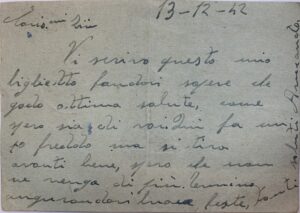 13-12-42
Cariss.mi Zii
Vi scrivo questo mio
biglietto facendovi sapere che
godo ottima salute, come
spero sia di voi. Qui fa un
po freddo ma si tira
avanti bene, spero che non
ne venga di più. Termino
augurandovi buone feste, tanti
saluti